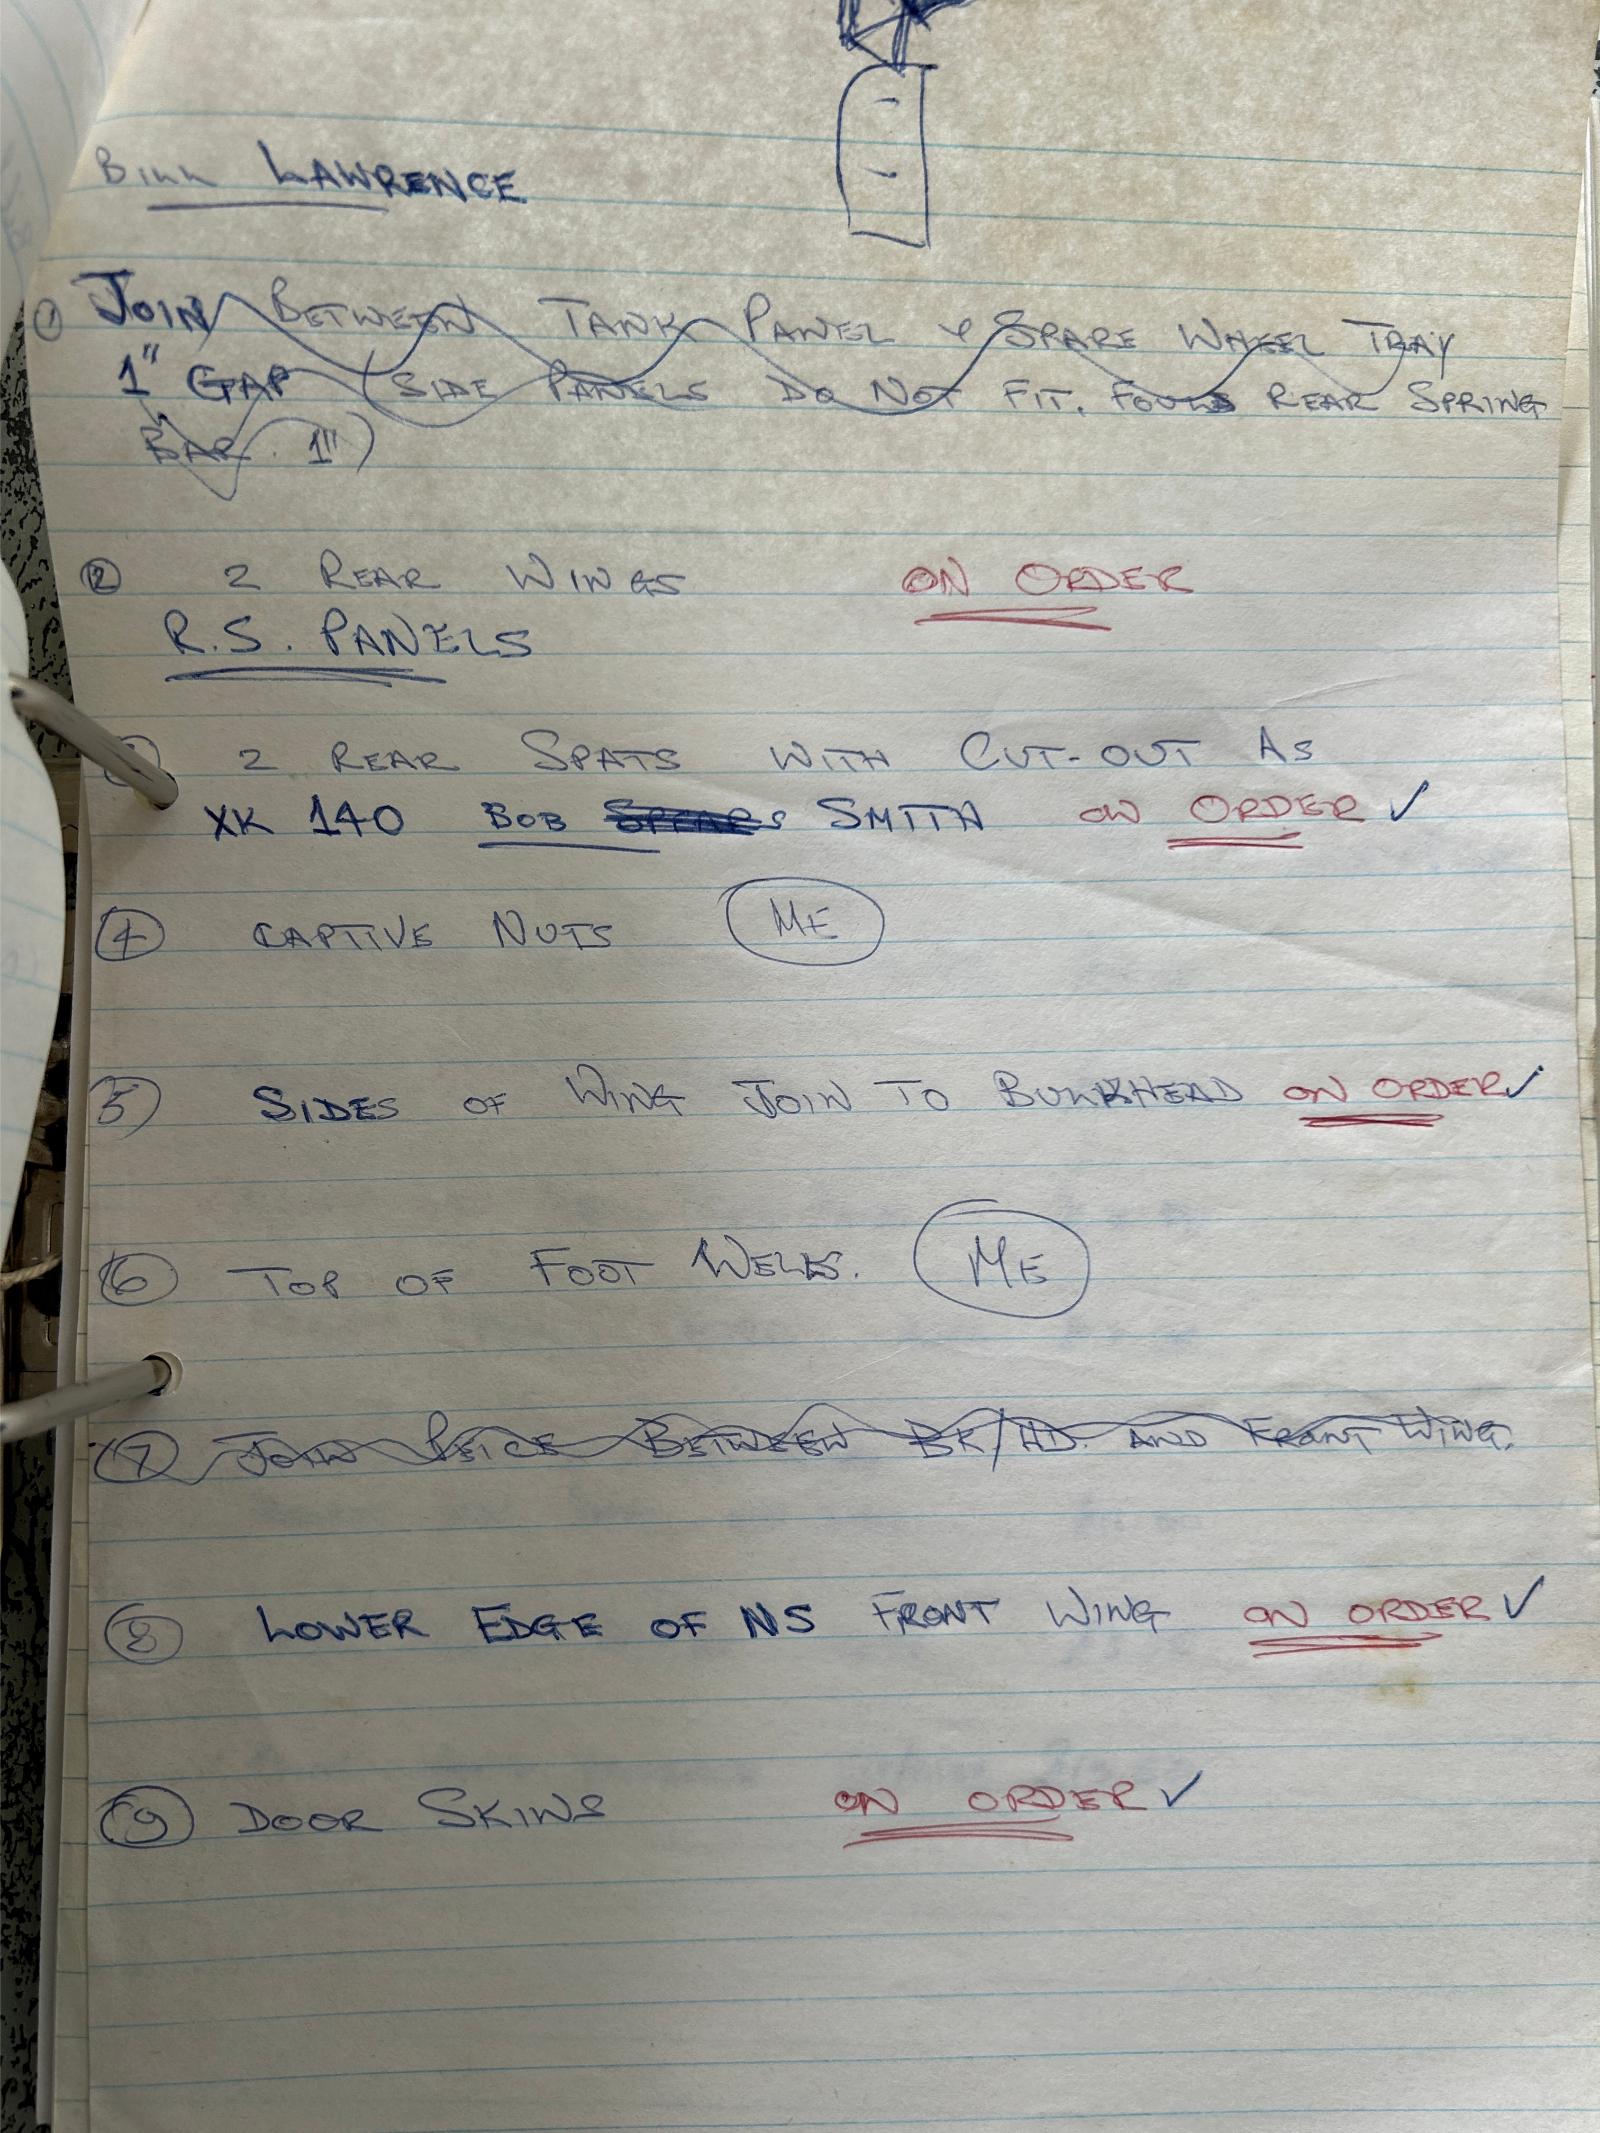 BILL LAWRENCE
① JOIN BETWEEN TANK PANEL & SPARE WHEEL TRAY
1" GAP (SIDE PANELS DO NOT FIT. FOULS REAR SPRING
BAR. 1")
② 2 REAR WINGS ON ORDER
R.S. PANELS
③ 2 REAR SPATS WITH CUT-OUT AS
XK 140 BOB SMITH ON ORDER ✓
④ CAPTIVE NUTS ME
⑤ SIDES OF WING JOIN TO BULKHEAD ON ORDER ✓
⑥ TOP OF FOOT WELLS. ME
⑦ JOIN PEICE BETWEEN BK/HD. AND FRONT WING.
⑧ LOWER EDGE OF NS FRONT WING ON ORDER ✓
⑨ DOOR SKINS ON ORDER ✓